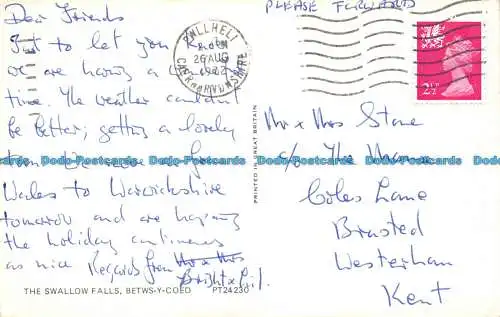 Dear Friends
Just to let you know
we are having a
time. The weather couldn't
be better; getting a lovely
tan. We
Wales to Warwickshire
tomorrow and are hoping
the holiday continues
as nice. Regards from
THE SWALLOW FALLS, BETWS-Y-COED
PT24230
PWLLHELI
26 AUG
CAERNARVONSHIRE
PRINTED IN GREAT BRITAIN
PLEASE FORWARD
2½
Mr & Mrs Stone
c/o The
Coles Lane
Brasted
Westerham
Kent
Dodo-Postcards Dodo-Postcards Dodo-Postcards Dodo-Postcards Dodo-Postcards Dodo-Postcards